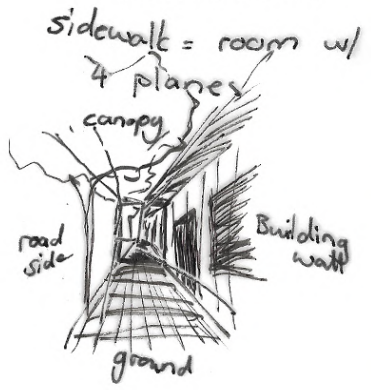 sidewalk = room w/
4 planes
canopy
road
side
Building
wall
ground